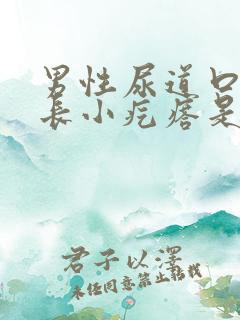 男性尿道口
长小疙瘩是
君子以泽
未经同意禁止转载